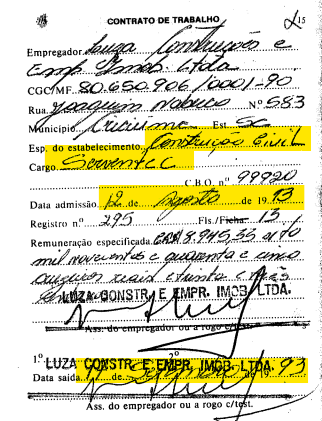 CONTRATO DE TRABALHO 15
Empregador Luza Construções e
Emp. Imob. Ltda
CGC/MF 80.650.906/0001-90
Rua Joaquim Nabuco Nº 583
Município Criciuma Est SC
Esp. do estabelecimento Construção Civil
Cargo Servente
C.B.O. nº 99920
Data admissão 12 de agosto de 1993
Registro nº 295 Fls./Ficha 13
Remuneração especificada 8.945,35
mil novecentos e quarenta e cinco
cruzeiros reais e trinta e
LUZA CONSTR. E EMPR. IMOB. LTDA.
Ass. do empregador ou a rogo c/test.
1º 2º
LUZA CONSTR. E EMPR. IMOB. LTDA.
Data saída de de 1993
Ass. do empregador ou a rogo c/test.